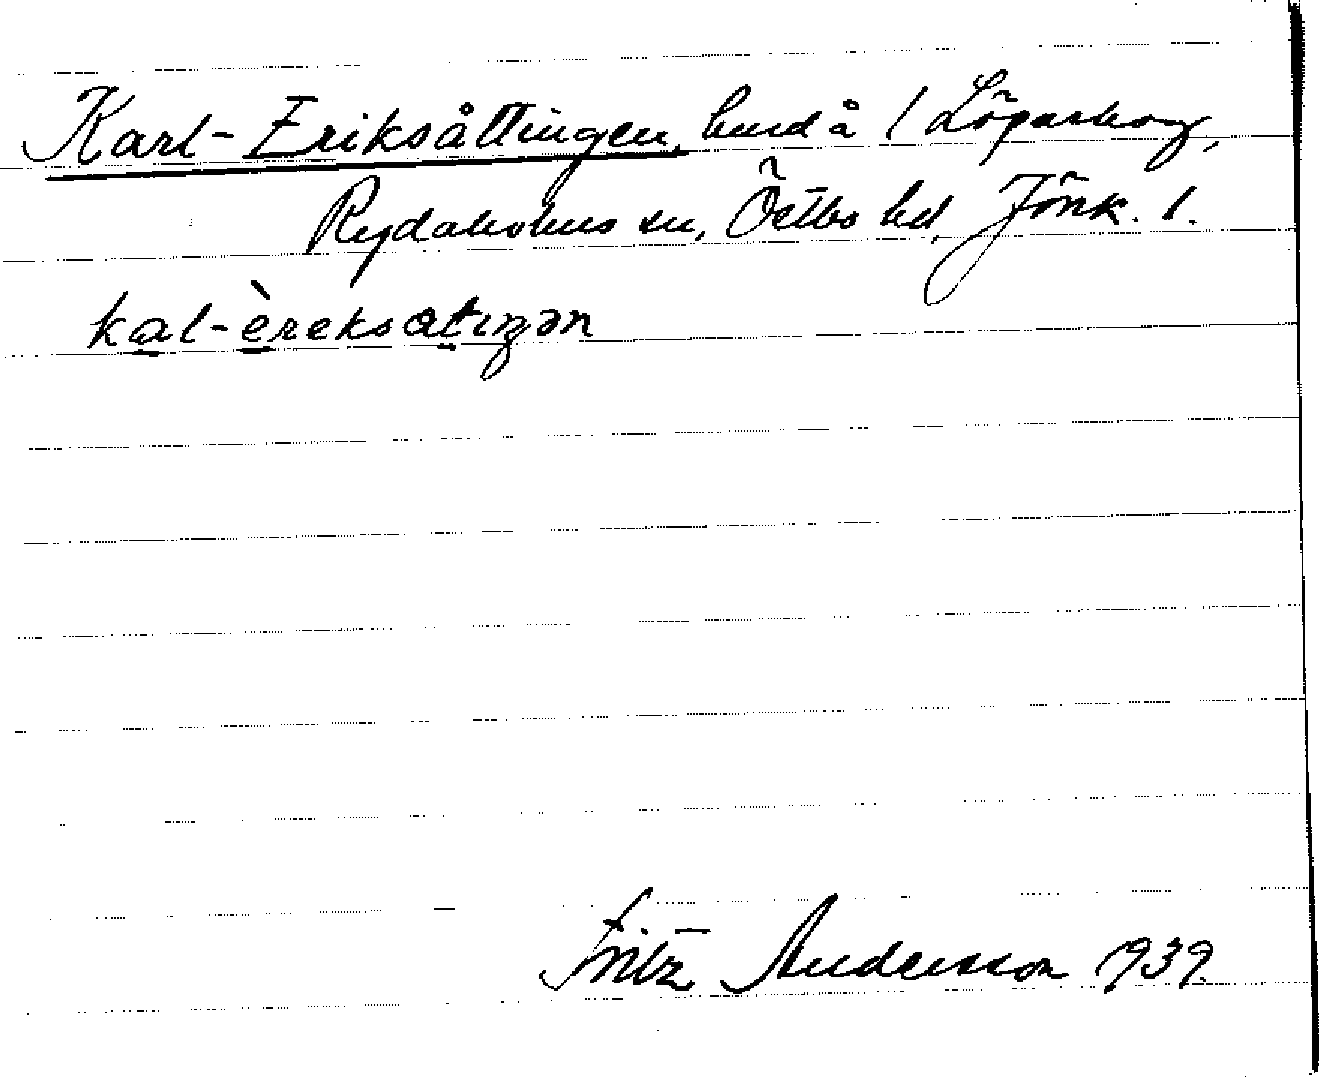 Karl-Eriksåttingen, lund å 1 Löparskog,
Rydaholms sn, Östbo hd, Jönk. l.
kal-èreksatiŋən
Fritz Andersson 1939.